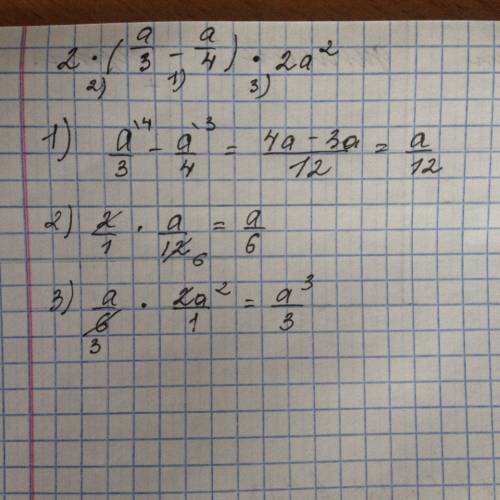 2 · (a/3 − a/4) · 2a²
2) 1) 3)
1) a\4/3 − a\3/4 = 4a − 3a/12 = a/12
2) 2/1 · a/12 6 = a/6
3) a/6 3 · 2a²/1 = a³/3